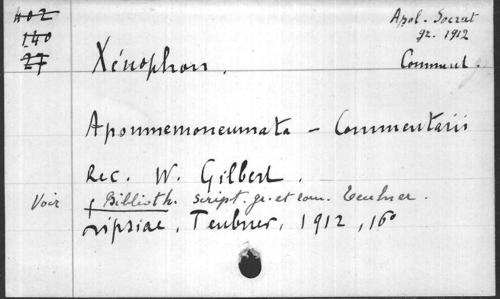 402
140
27
Apol. Socrat
gr. 1912
Comment.
Xénophon.
Apommemoneumata - Commentarii
Rec. W. Gilbert.
Voir Biblioth. script. gr. et rom. Teubner.
Lipsiae, Teubner, 1912, 16°